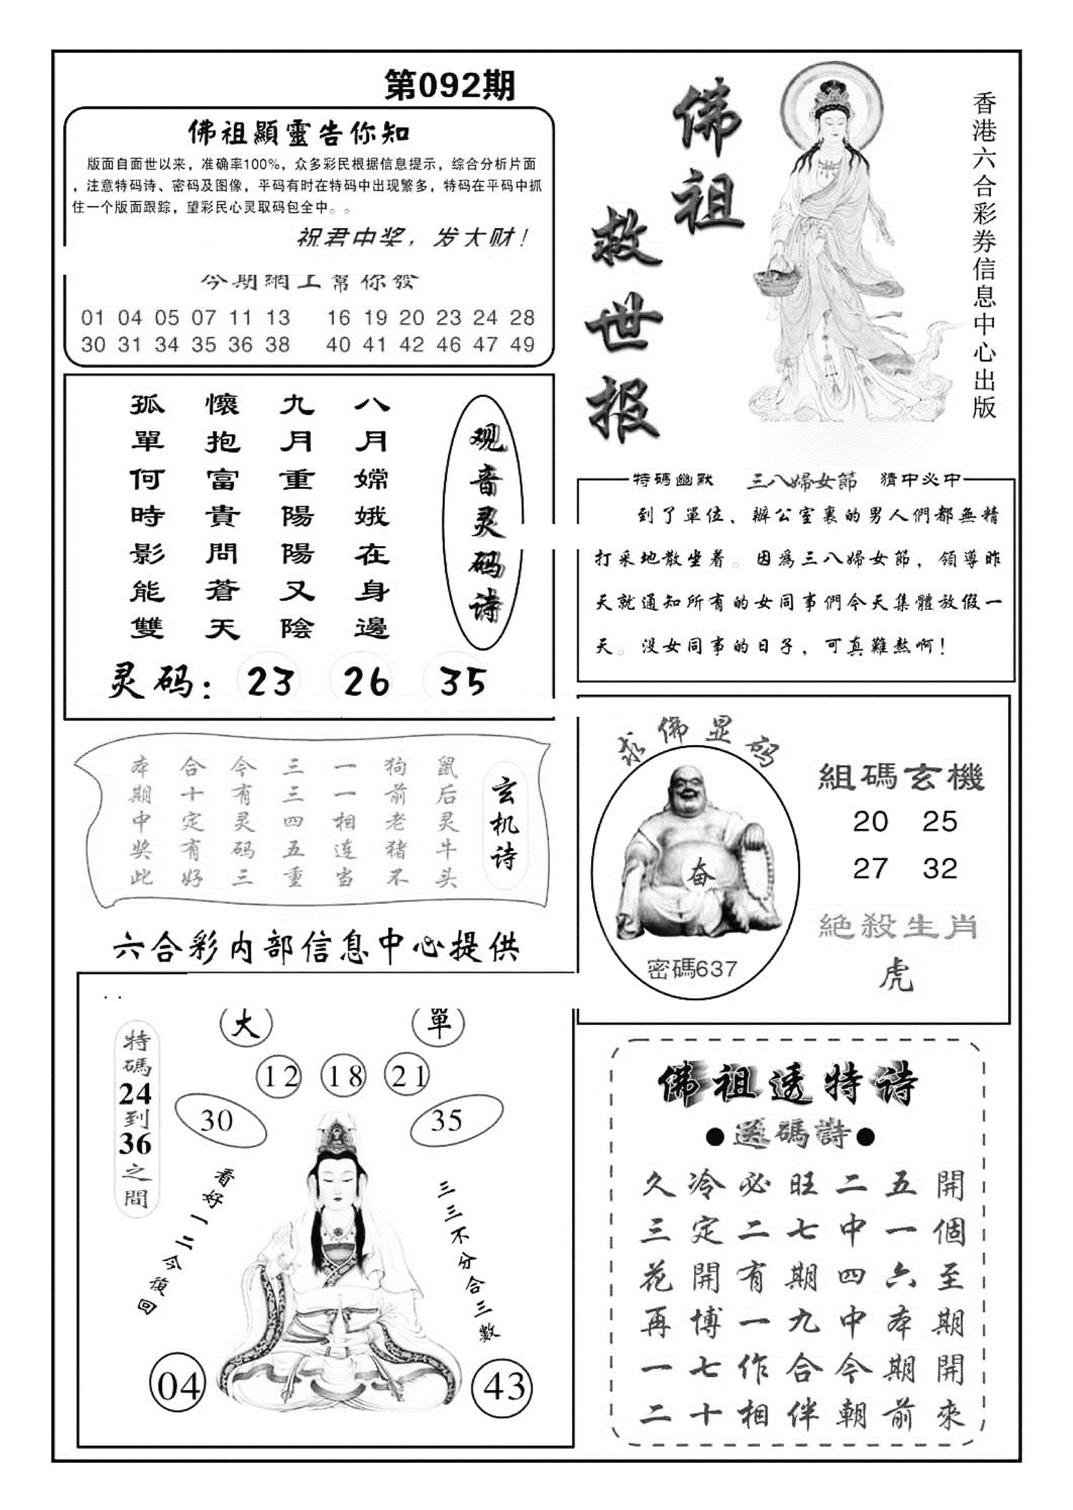 第092期
佛祖顯靈告你知
版面自面世以来，准确率100%，众多彩民根据信息提示，综合分析片面
，注意特码诗、密码及图像，平码有时在特码中出现繁多，特码在平码中抓
住一个版面跟踪，望彩民心灵取码包全中。。
祝君中奖，发大财！
今期網上幫你發
01 04 05 07 11 13 16 19 20 23 24 28
30 31 34 35 36 38 40 41 42 46 47 49
佛祖
救世报
香港六合彩券信息中心出版
观音灵码诗
八月嫦娥在身邊
九月重陽陽又陰
懷抱富貴問蒼天
孤單何時影能雙
灵码：23 26 35
特碼幽默 三八婦女節 猜中必中
到了單位、辦公室裏的男人們都無精
打采地散坐着。因爲三八婦女節，領導昨
天就通知所有的女同事們今天集體放假一
天。没女同事的日子，可真難熬啊！
玄机诗
鼠后灵牛头
狗前老猪不
一一相连当
三三四五重
今有灵码三
合十定有好
本期中奖此
求佛显码
奋
密碼637
組碼玄機
20 25
27 32
絕殺生肖
虎
六合彩内部信息中心提供
大
單
12 18 21
30
35
特碼24到36之間
看好一二今後回
三三不分合三數
04
43
佛祖透特诗
●送碼詩●
久冷必旺二五開
三定二七中一個
花開有期四六至
再博一九中本期
一七作合今期開
二十相伴朝前來